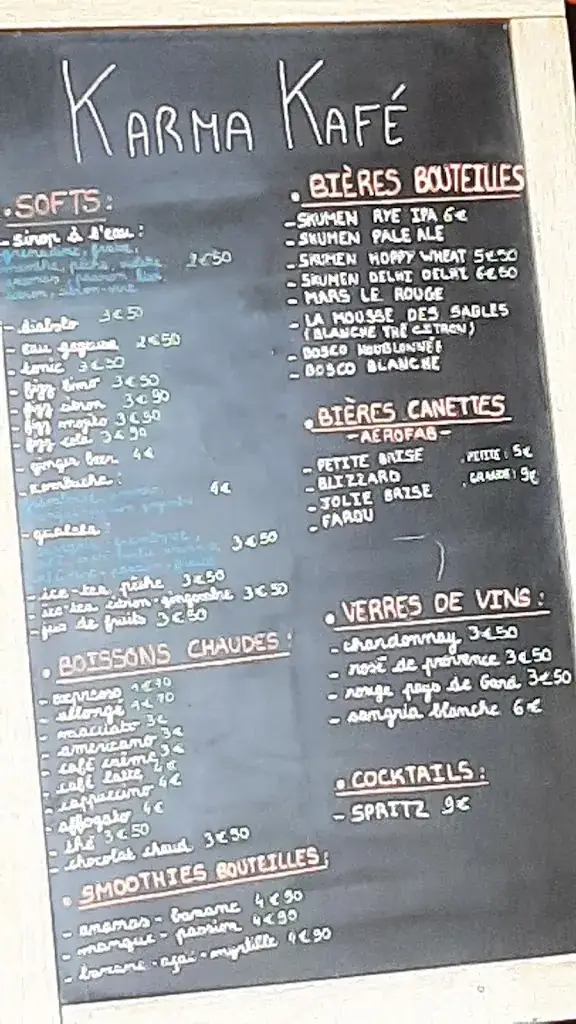 KARMA KAFÉ
. SOFTS :
- Sirop à l'eau :
grenadine, fraise,
menthe, pêche,
2€50
- diabolo 3€50
- eau gazeuse 2€50
- tonic 3€50
- fizz limo 3€50
- fizz citron 3€90
- fizz mojito 3€90
- fizz cola 3€90
- ginger beer 4€
- Kombucha :
4€
3€50
- ice-tea pêche 3€50
- ice-tea citron-gingembre 3€50
- jus de fruits 3€50
. BOISSONS CHAUDES :
- expresso
- allongé
- macciato 3€
- americano 3€
- café crème 3€
- café latte
- cappuccino 4€
- affogato 4€
- thé 3€50
- chocolat chaud 3€90
. SMOOTHIES BOUTEILLES :
- ananas - banane 4€90
- mangue - passion 4€90
- banane - açaï - myrtille 4€90
. BIÈRES BOUTEILLES
- SKUMEN RYE IPA 6€
- SKUMEN PALE ALE
- SKUMEN HOPPY WHEAT 5€50
- SKUMEN DELHI DELHI 6€50
- MARS LE ROUGE
- LA MOUSSE DES SABLES
(BLANCHE THÉ CITRON)
- BOSCO HOUBLONNÉE
- BOSCO BLANCHE
. BIÈRES CANETTES
- AEROFAB -
- PETITE BRISE . PETITE : 5€
- BLIZZARD . GRANDE : 9€
- JOLIE BRISE
- FAROU
. VERRES DE VINS :
- chardonnay 3€50
- rosé de provence 3€50
- rouge pays de Gard 3€50
- sangria blanche 6€
. COCKTAILS :
- SPRITZ 9€